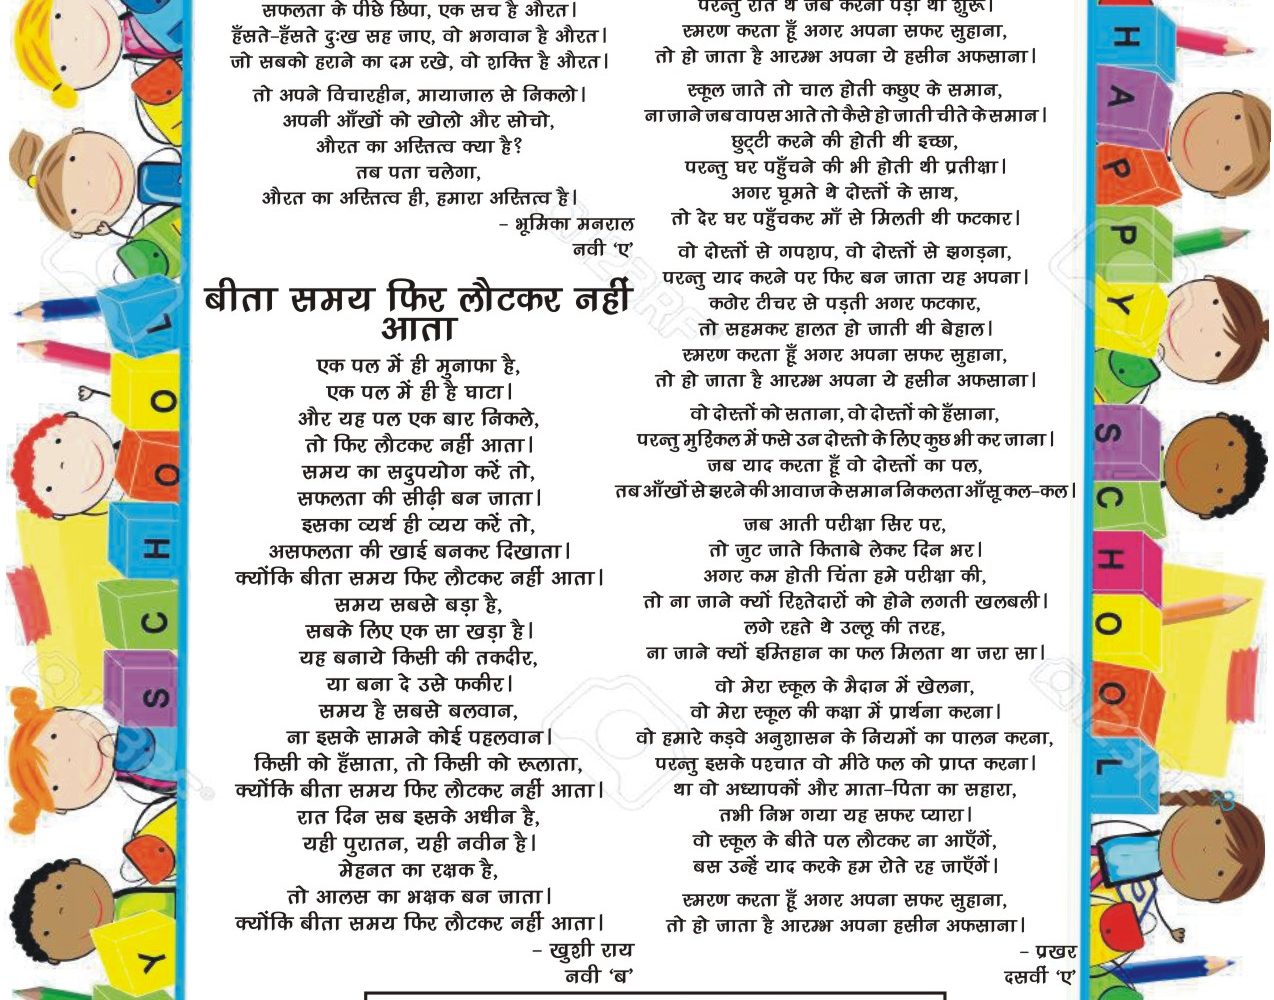 सफलता के पीछे छिपा, एक सच है औरत।
हँसते-हँसते दुःख सह जाए, वो भगवान है औरत।
जो सबको हराने का दम रखे, वो शक्ति है औरत।
तो अपने विचारहीन, मायाजाल से निकलो।
अपनी आँखों को खोलो और सोचो,
औरत का अस्तित्व क्या है?
तब पता चलेगा,
औरत का अस्तित्व ही, हमारा अस्तित्व है।
- भूमिका मनराल
नवी ‘ए’
बीता समय फिर लौटकर नहीं
आता
एक पल में ही मुनाफा है,
एक पल में ही है घाटा।
और यह पल एक बार निकले,
तो फिर लौटकर नहीं आता।
समय का सदुपयोग करें तो,
सफलता की सीढ़ी बन जाता।
इसका व्यर्थ ही व्यय करें तो,
असफलता की खाई बनकर दिखाता।
क्योंकि बीता समय फिर लौटकर नहीं आता।
समय सबसे बड़ा है,
सबके लिए एक सा खड़ा है।
यह बनाये किसी की तकदीर,
या बना दे उसे फकीर।
समय है सबसे बलवान,
ना इसके सामने कोई पहलवान।
किसी को हँसाता, तो किसी को रूलाता,
क्योंकि बीता समय फिर लौटकर नहीं आता।
रात दिन सब इसके अधीन है,
यही पुरातन, यही नवीन है।
मेहनत का रक्षक है,
तो आलस का भक्षक बन जाता।
क्योंकि बीता समय फिर लौटकर नहीं आता।
- खुशी राय
नवी ‘ब’
परन्तु रोते थे जब करना पड़ा था शुरू।
स्मरण करता हूँ अगर अपना सफर सुहाना,
तो हो जाता है आरम्भ अपना ये हसीन अफसाना।
स्कूल जाते तो चाल होती कछुए के समान,
ना जाने जब वापस आते तो कैसे हो जाती चीते के समान।
छुट्टी करने की होती थी इच्छा,
परन्तु घर पहुँचने की भी होती थी प्रतीक्षा।
अगर घूमते थे दोस्तों के साथ,
तो देर घर पहुँचकर माँ से मिलती थी फटकार।
वो दोस्तों से गपशप, वो दोस्तों से झगड़ना,
परन्तु याद करने पर फिर बन जाता यह अपना।
कठोर टीचर से पड़ती अगर फटकार,
तो सहमकर हालत हो जाती थी बेहाल।
स्मरण करता हूँ अगर अपना सफर सुहाना,
तो हो जाता है आरम्भ अपना ये हसीन अफसाना।
वो दोस्तों को सताना, वो दोस्तों को हँसाना,
परन्तु मुश्किल में फसे उन दोस्तो के लिए कुछ भी कर जाना।
जब याद करता हूँ वो दोस्तों का पल,
तब आँखों से झरने की आवाज के समान निकलता आँसू कल-कल।
जब आती परीक्षा सिर पर,
तो जुट जाते किताबे लेकर दिन भर।
अगर कम होती चिंता हमे परीक्षा की,
तो ना जाने क्यों रिश्तेदारों को होने लगती खलबली।
लगे रहते थे उल्लू की तरह,
ना जाने क्यों इम्तिहान का फल मिलता था जरा सा।
वो मेरा स्कूल के मैदान में खेलना,
वो मेरा स्कूल की कक्षा में प्रार्थना करना।
वो हमारे कड़वे अनुशासन के नियमों का पालन करना,
परन्तु इसके पश्चात वो मीठे फल को प्राप्त करना।
था वो अध्यापकों और माता-पिता का सहारा,
तभी निभ गया यह सफर प्यारा।
वो स्कूल के बीते पल लौटकर ना आएँगें,
बस उन्हें याद करके हम रोते रह जाएँगें।
स्मरण करता हूँ अगर अपना सफर सुहाना,
तो हो जाता है आरम्भ अपना हसीन अफसाना।
- प्रखर
दसवीं ‘ए’
Y
S
C
H
O
O
L
H
A
P
P
Y
S
C
H
O
O
L